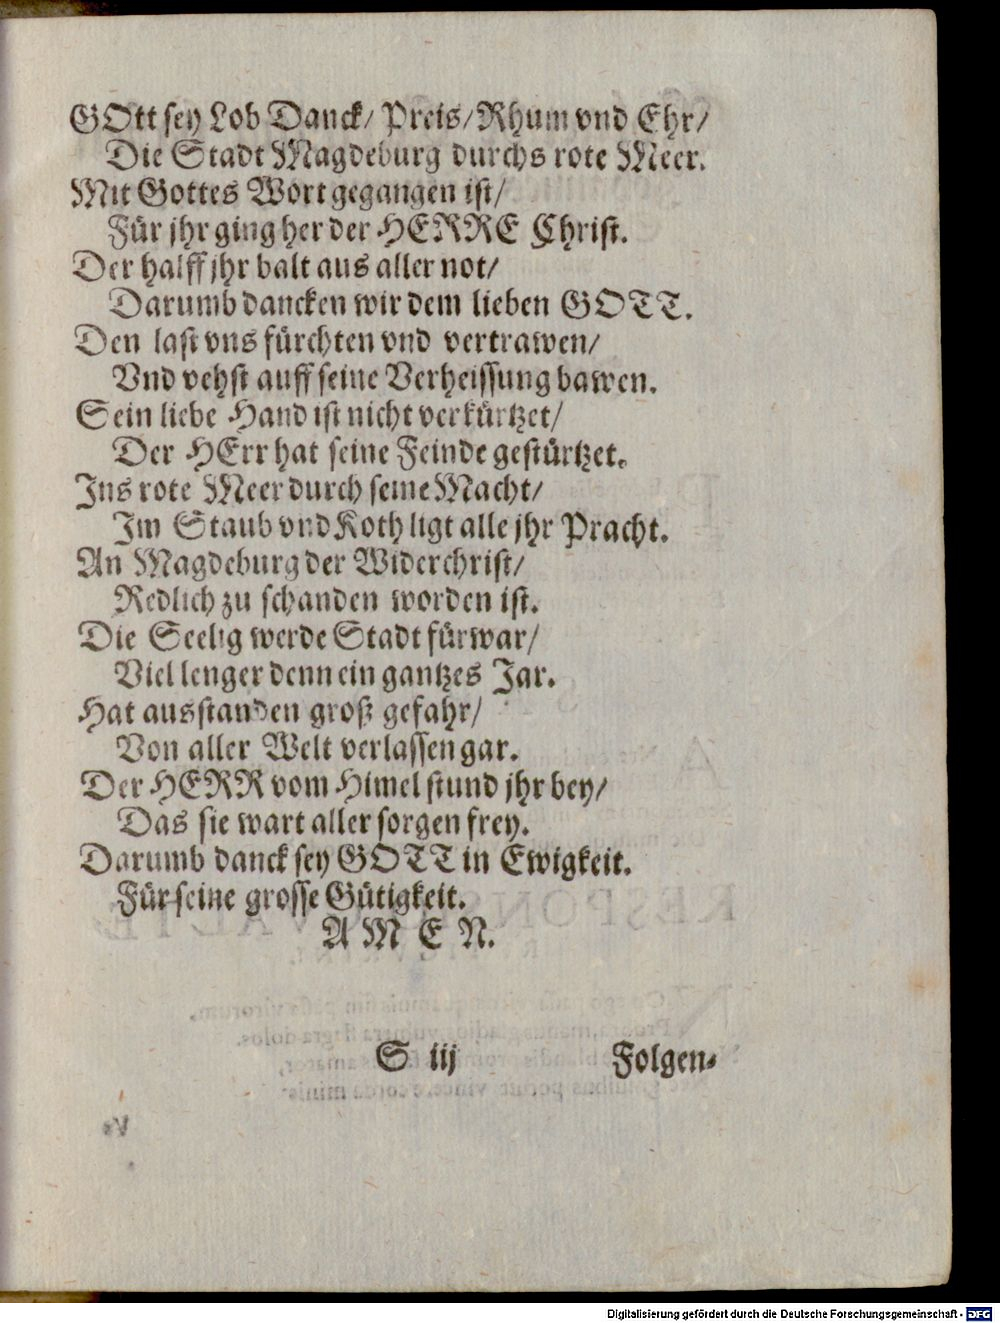 GOtt sey Lob Danck/ Preis/ Rhum vnd Ehr/
Die Stadt Magdeburg durchs rote Meer.
Mit Gottes Wort gegangen ist/
Für jhr ging her der HERRE Christ.
Der halff jhr balt aus aller not/
Darumb dancken wir dem lieben GOTT.
Den last vns fürchten vnd vertrawen/
Vnd vehst auff seine Verheissung bawen.
Sein liebe Hand ist nicht verkürtzet/
Der HErr hat seine Feinde gestürtzet.
Ins rote Meer durch seine Macht/
Im Staub vnd Koth ligt alle jhr Pracht.
An Magdeburg der Widerchrist/
Redlich zu schanden worden ist.
Die Seelig werde Stadt fürwar/
Viel lenger denn ein gantzes Jar.
Hat ausstanden groß gefahr/
Von aller Welt verlassen gar.
Der HERR vom Himel stund jhr bey/
Das sie wart aller sorgen frey.
Darumb danck sey GOTT in Ewigkeit.
Für seine grosse Gütigkeit.
A M E N.
S iij Folgen-
Digitalisierung gefördert durch die Deutsche Forschungsgemeinschaft - DFG